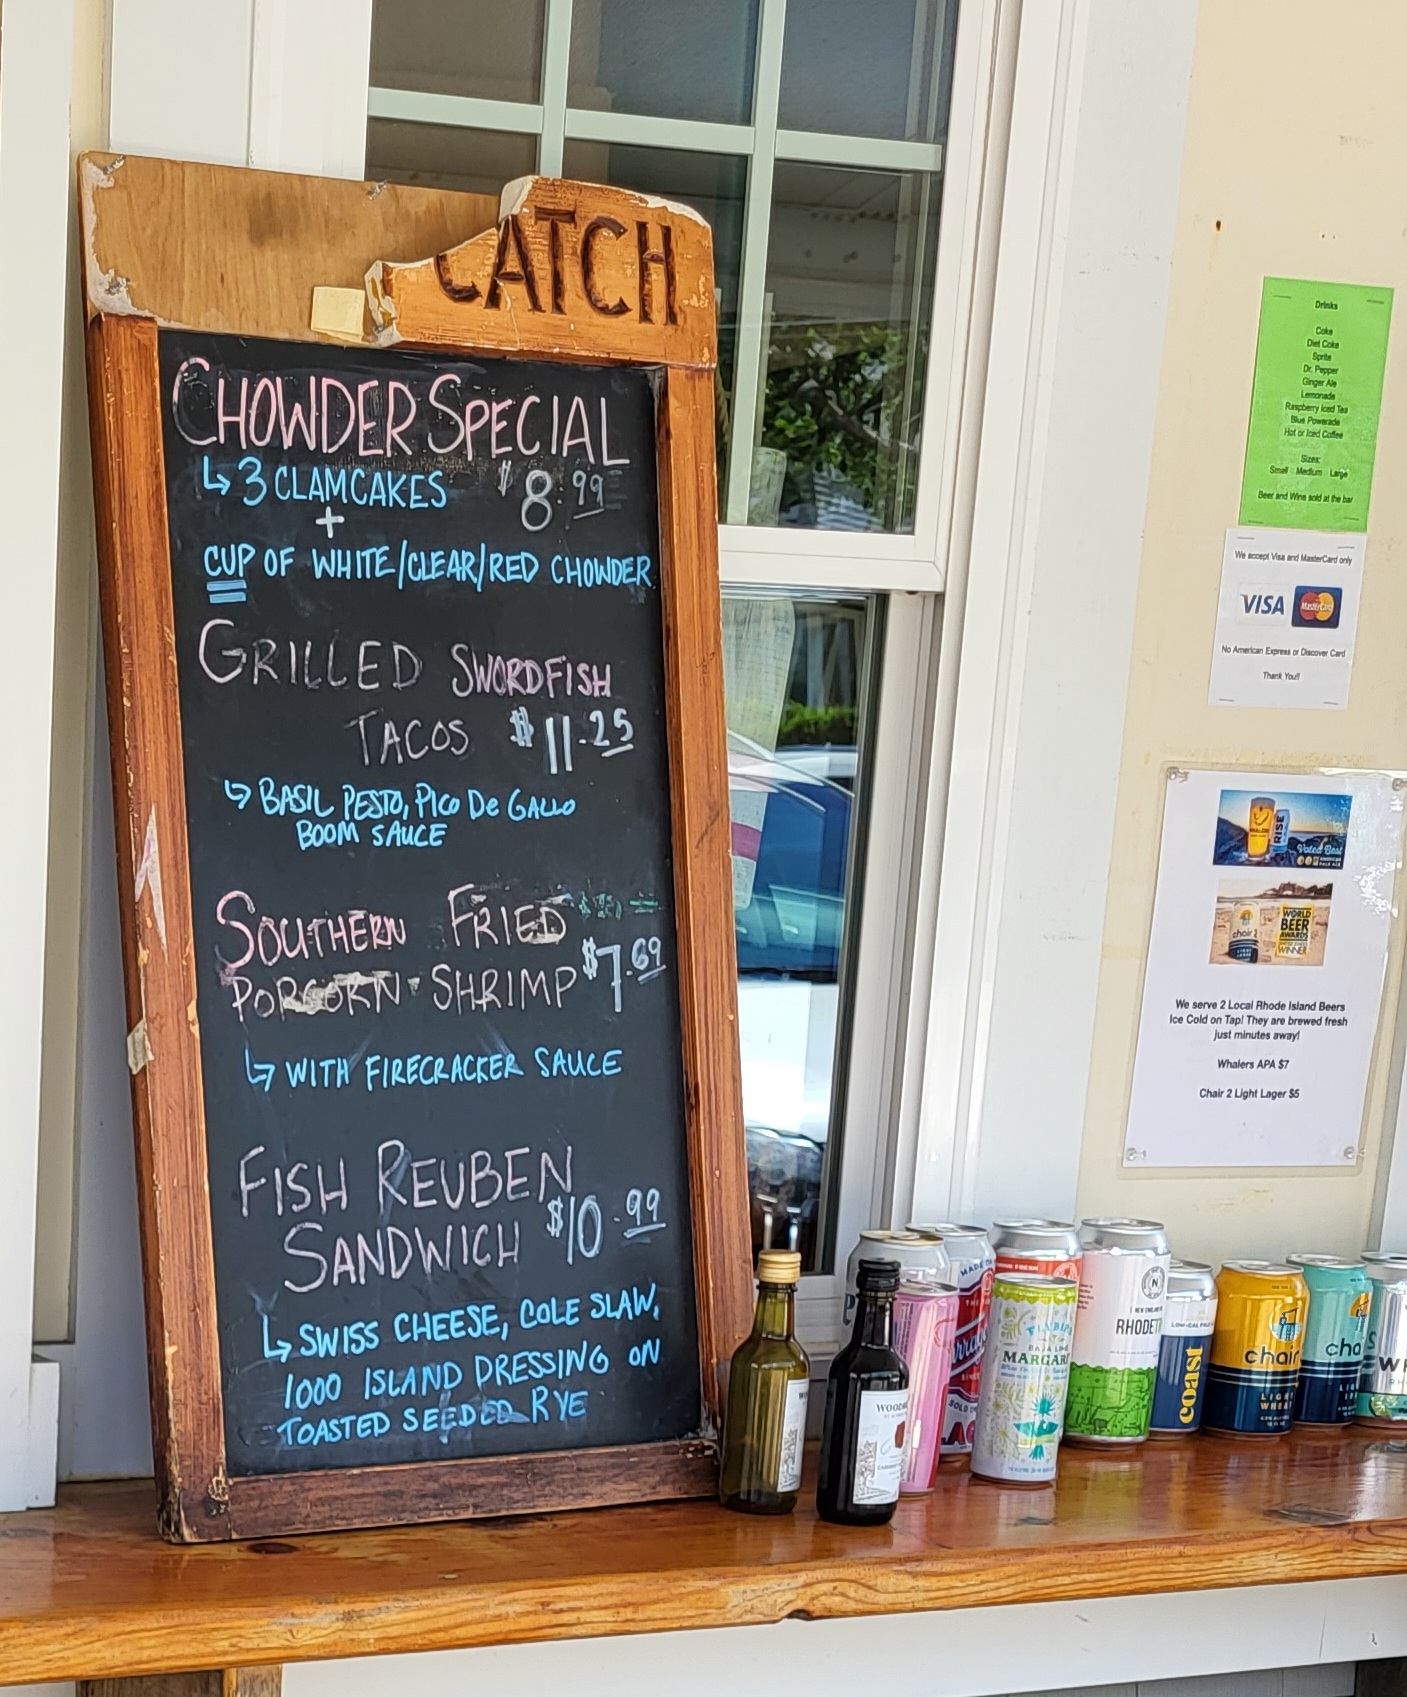 CATCH
CHOWDER SPECIAL
↳ 3 CLAMCAKES $8.99
+
CUP OF WHITE/CLEAR/RED CHOWDER
GRILLED SWORDFISH
TACOS $11.25
↳ BASIL PESTO, PICO DE GALLO
BOOM SAUCE
SOUTHERN FRIED
POPCORN SHRIMP $7.69
↳ WITH FIRECRACKER SAUCE
FISH REUBEN
SANDWICH $10.99
↳ SWISS CHEESE, COLE SLAW,
1000 ISLAND DRESSING ON
TOASTED SEEDED RYE
Drinks
Coke
Diet Coke
Sprite
Dr. Pepper
Ginger Ale
Lemonade
Raspberry Iced Tea
Blue Powerade
Hot or Iced Coffee
Sizes:
Small Medium Large
Beer and Wine sold at the bar
We accept Visa and MasterCard only
VISA MasterCard
No American Express or Discover Card
Thank You!!
RISE
Voted Best
chair 2
WORLD
BEER
AWARDS
WINNER
We serve 2 Local Rhode Island Beers
Ice Cold on Tap! They are brewed fresh
just minutes away!
Whalers APA $7
Chair 2 Light Lager $5
MARGAR
RHODE
coast
chair
LIGHT
WHEAT
cha